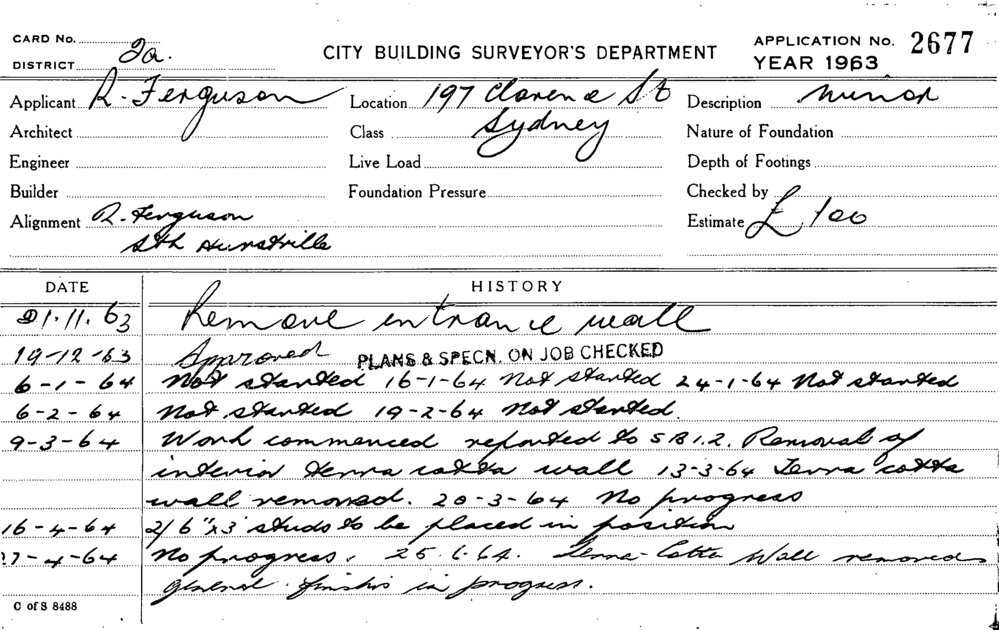 CARD No.
DISTRICT 2a.
CITY BUILDING SURVEYOR'S DEPARTMENT
APPLICATION No. 2677
YEAR 1963
Applicant R. Ferguson Location 197 Clarence St Description Minor
Architect Class Sydney Nature of Foundation
Engineer Live Load Depth of Footings
Builder Foundation Pressure Checked by
Alignment R. Ferguson Estimate £ 100
Sth Hurstville
DATE HISTORY
21.11.63 Remove entrance wall
19-12-63 Approved PLANS & SPECN. ON JOB CHECKED
6-1-64 Not started 16-1-64 Not started 24-1-64 Not started
6-2-64 Not started 19-2-64 Not started.
9-3-64 Work commenced reported to SBI.2. Removal of
interior terra cotta wall 13-3-64 Terra cotta
wall removed. 20-3-64 No progress
16-4-64 2/6"x3" studs to be placed in position
27-4-64 No progress. 25.6.64. Terra-Cotta Wall removed
general finishes in progress.
C of S 8488